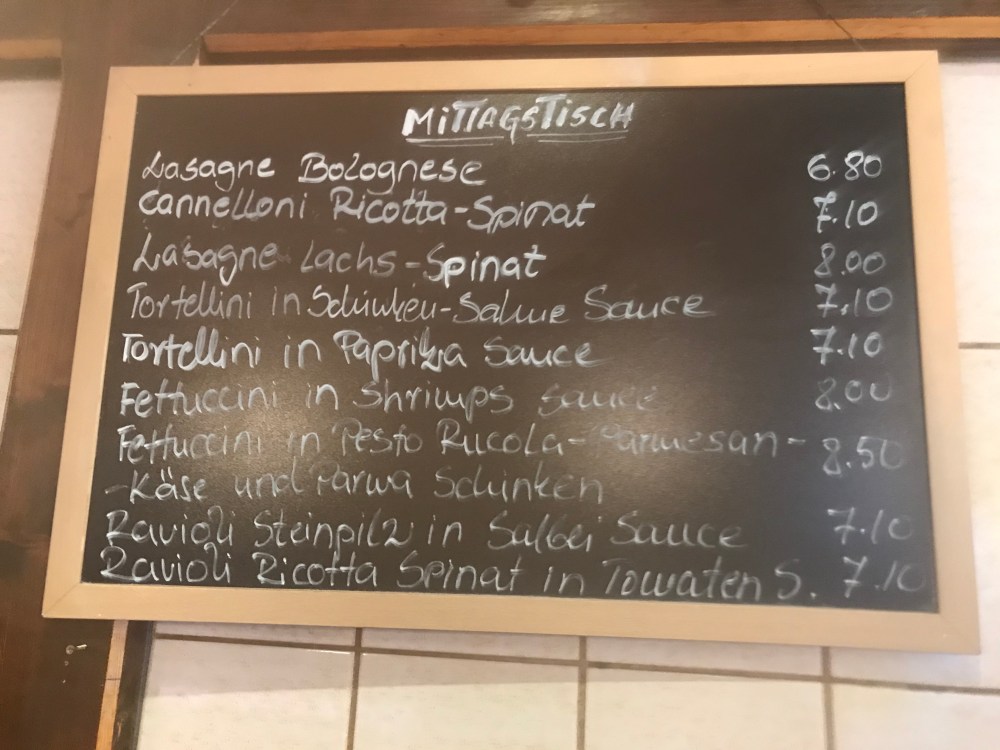 MiTTAGSTiSCH
Lasagne Bolognese 6.80
Cannelloni Ricotta-Spinat 7.10
Lasagne Lachs-Spinat 8.00
Tortellini in Schinken-Sahne Sauce 7.10
Tortellini in Paprika Sauce 7.10
Fettuccini in Shrimps Sauce 8.00
Fettuccini in Pesto Rucola-Parmesan- 8.50
-Käse und Parma Schinken
Ravioli Steinpilz in Salbei Sauce 7.10
Ravioli Ricotta Spinat in Tomaten S. 7.10